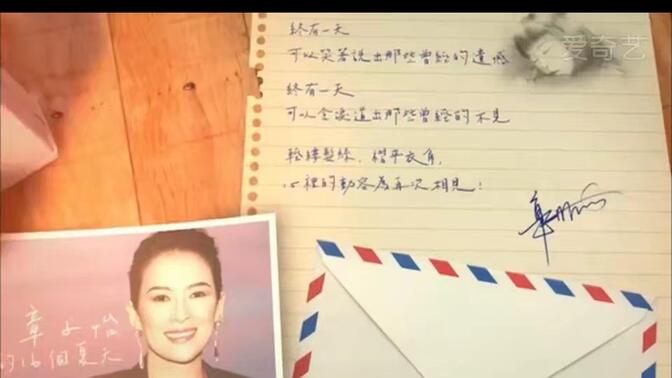 爱奇艺
終有一天
可以笑著說出那些曾經的遺憾
終有一天
可以道出那些曾經的不見
輕髮絲，褶平衣角，
心裡的動容為再次相見！
章子怡
的16個夏天